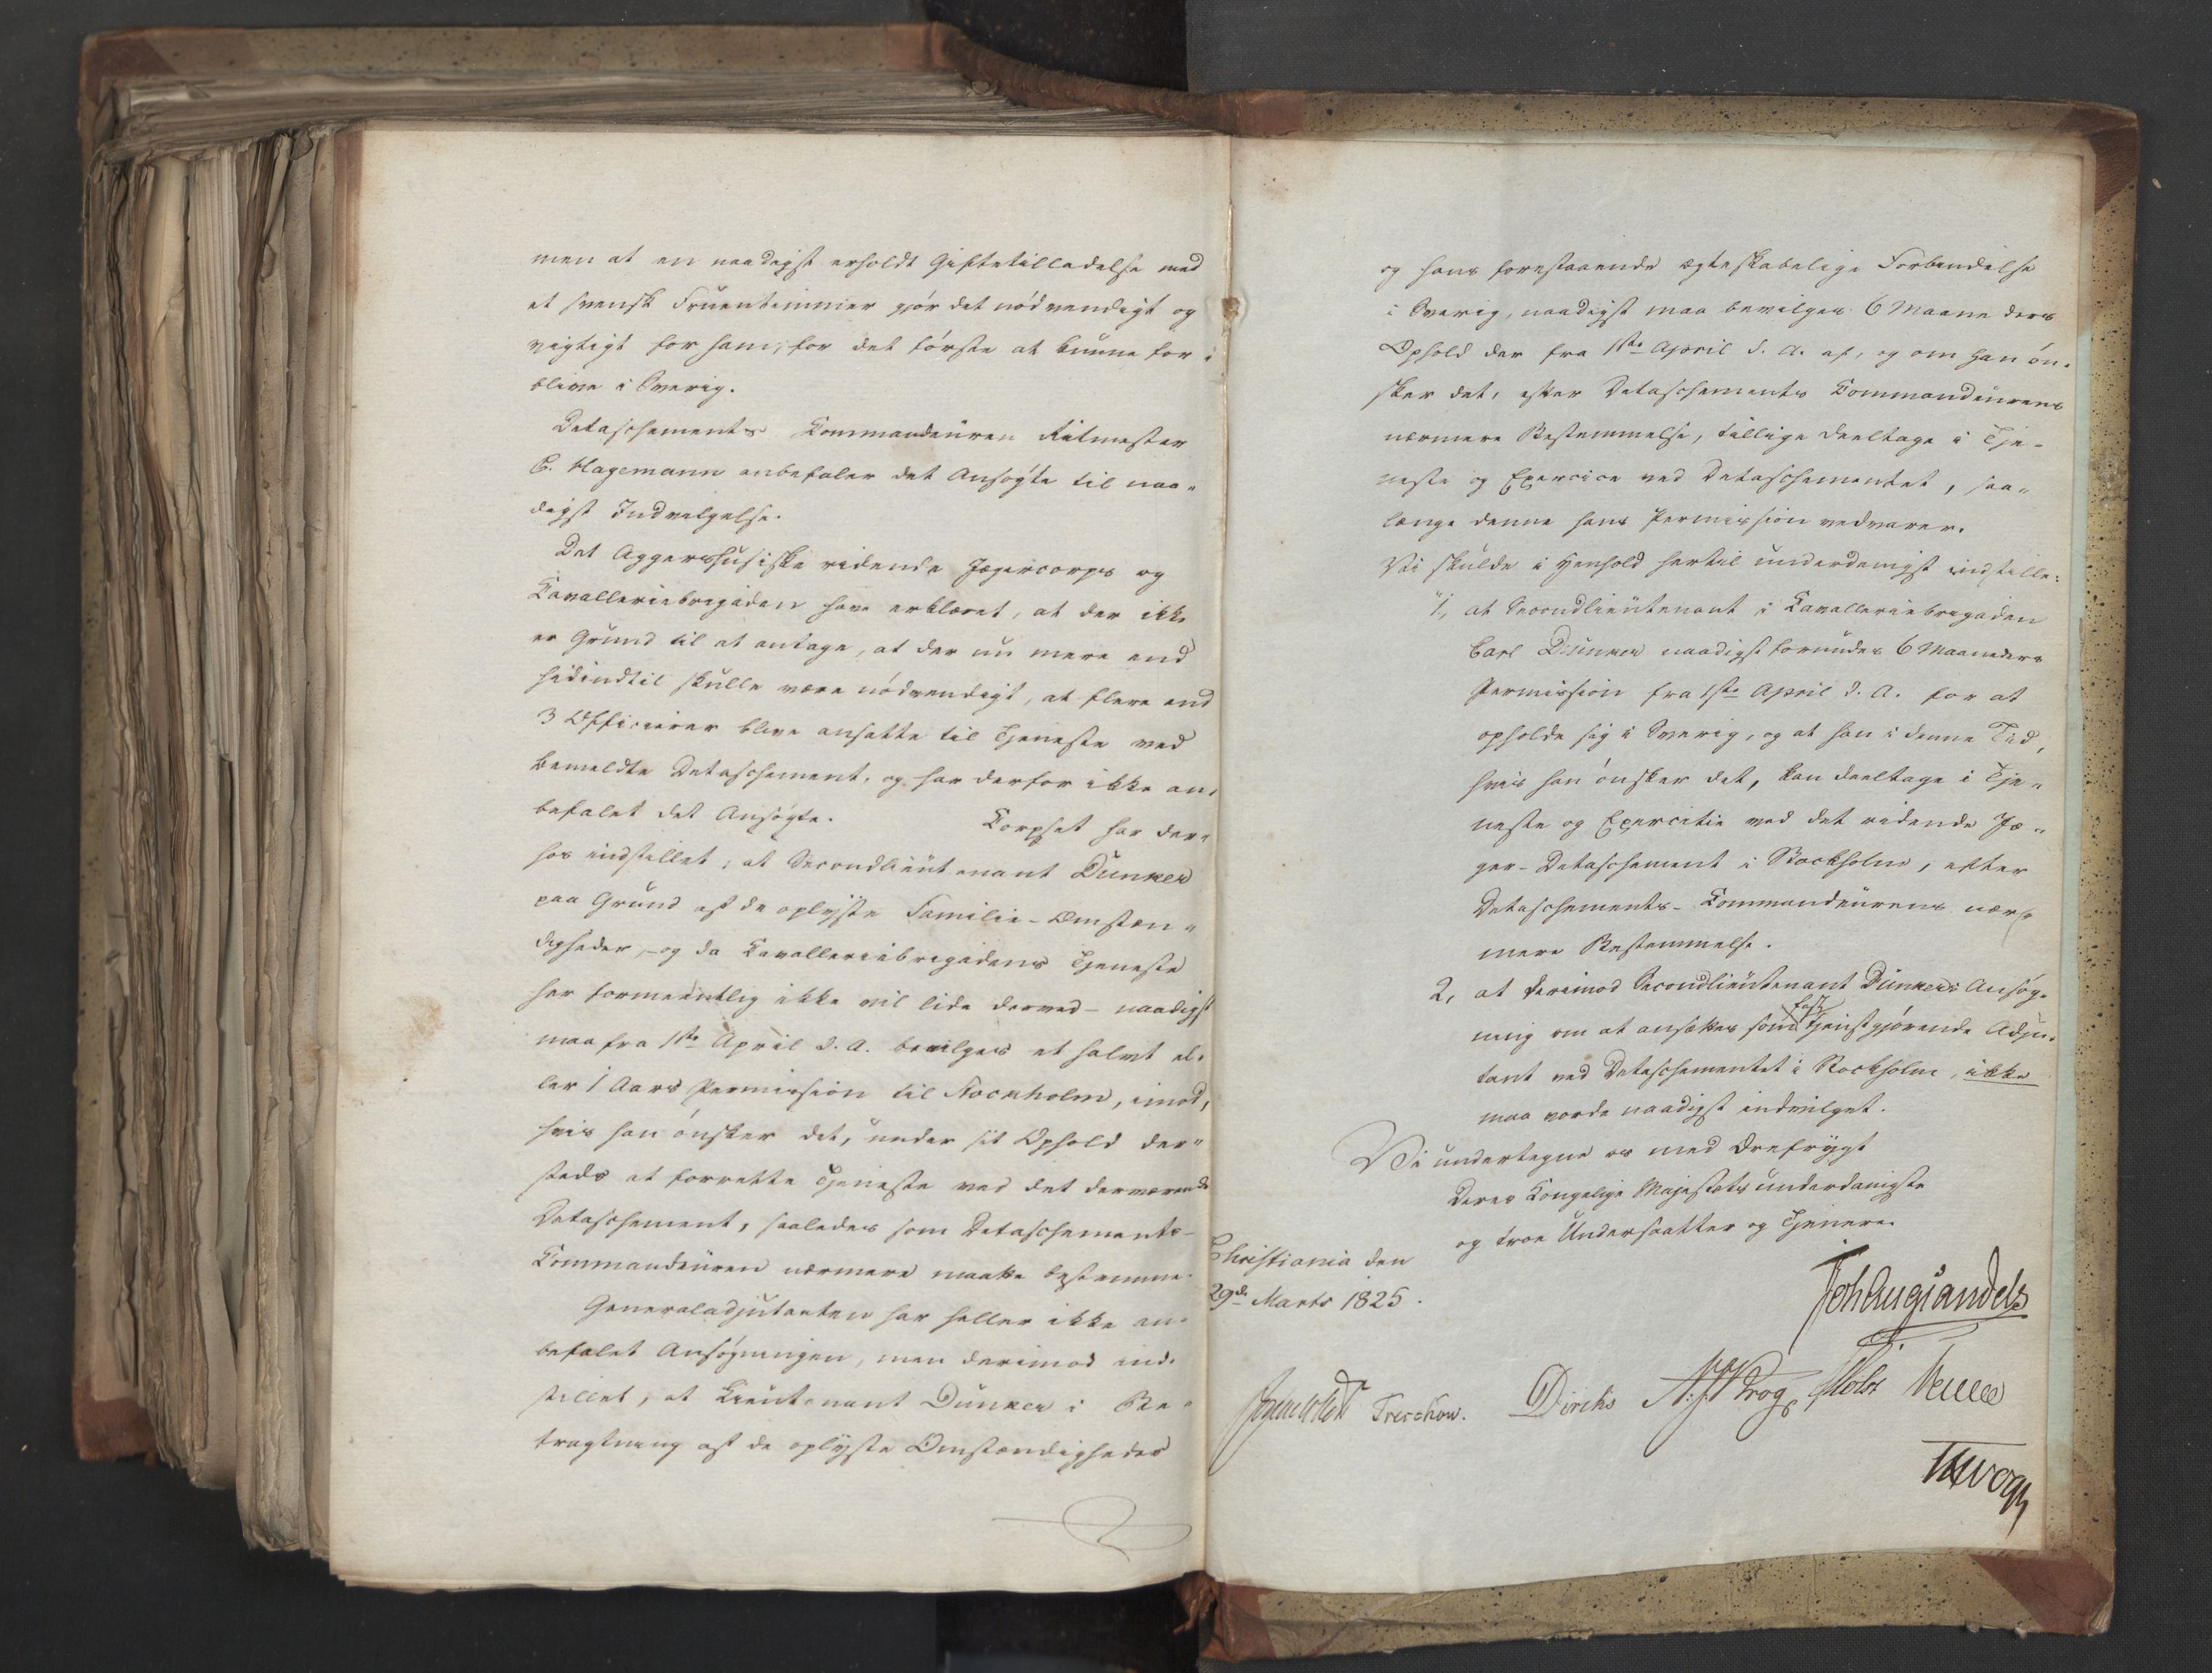 men at en naadigst erholdt Giftetilladelse med
et svensk Fruentimmer gjör det nödvendigt og
vigtigt for ham, for det förste at kunne for
blive i Sverig.
Detaschements Commandeuren Ritmester
C. Hagemann anbefaler det Ansögte til naa-
digst Indvilgelse.
Det Aggershusiske ridende Jægercorps og
Cavalleriebrigaden have erklæret, at der ikke
er Grund til at antage, at der nu mere end
hidindtil skulle være nödvendigt, at flere end
3 Officierer blive ansatte til Tjeneste ved
bemeldte Detaschement, og har derfor ikke an-
befalet det Ansögte. Corpset har der-
hos indstillet, at Secondlieutenant Dunker
paa Grund af de oplyste Familie-Omstæn-
digheder, - og da Cavalleriebrigadens Tjeneste
her formeentlig ikke vil lide derved - naadigst
maa fra 1ste April d. A. bevilges et halvt el-
ler 1 Aars Permission til Stockholm, imod,
hvis han önsker det, under sit Ophold der-
steds at forrette Tjeneste ved det derværende
Detaschement, saaledes som Detaschements-
Commandeuren nærmere maatte bestemme.
Generaladjutanten har heller ikke an-
befalet Ansögningen, men derimod ind-
stillet, at Lieutenant Dunker i Be-
tragtning af de oplyste Omstændigheder
og hans forestaaende ægteskabelige Forbindelse
i Sverig, naadigst maa bevilges 6 Maaneders
Ophold der fra 1ste April d. A. af, og om han ön-
sker det, efter Detaschements Commandeurens
nærmere Bestemmelse, tillige deeltage i Tje-
neste og Exercice ved Detaschementet, saa-
længe denne hans Permission vedvarer.
Vi skulde i Henhold hertil underdanigst indstille:
1, at Secondlieutenant i Cavalleriebrigaden
Carl Dunker naadigst forundes 6 Maaneders
Permission fra 1ste April d. A. for at
opholde sig i Sverig, og at han i denne Tid,
hvis han önsker det, kan deeltage i Tje-
neste og Exercitie ved det ridende Jæ-
ger-Detaschement i Stockholm, efter
Detaschements-Commandeurens nær-
mere Bestemmelse.
2, at derimod Secondlieutenant Dunkers Ansög-
ning om at ansættes som fast tjenstgjörende Adju-
tant ved Detaschementet i Stockholm, ikke
maa vorde naadigst indvilget.
Vi undertegne os med Ærefrygt
Deres Kongelige Majestets underdanigste
og troe Undersaatter og Tjenere.
Christiania den
29de Marts 1825.
Joh Aug Sandels
Treschow. Diriks